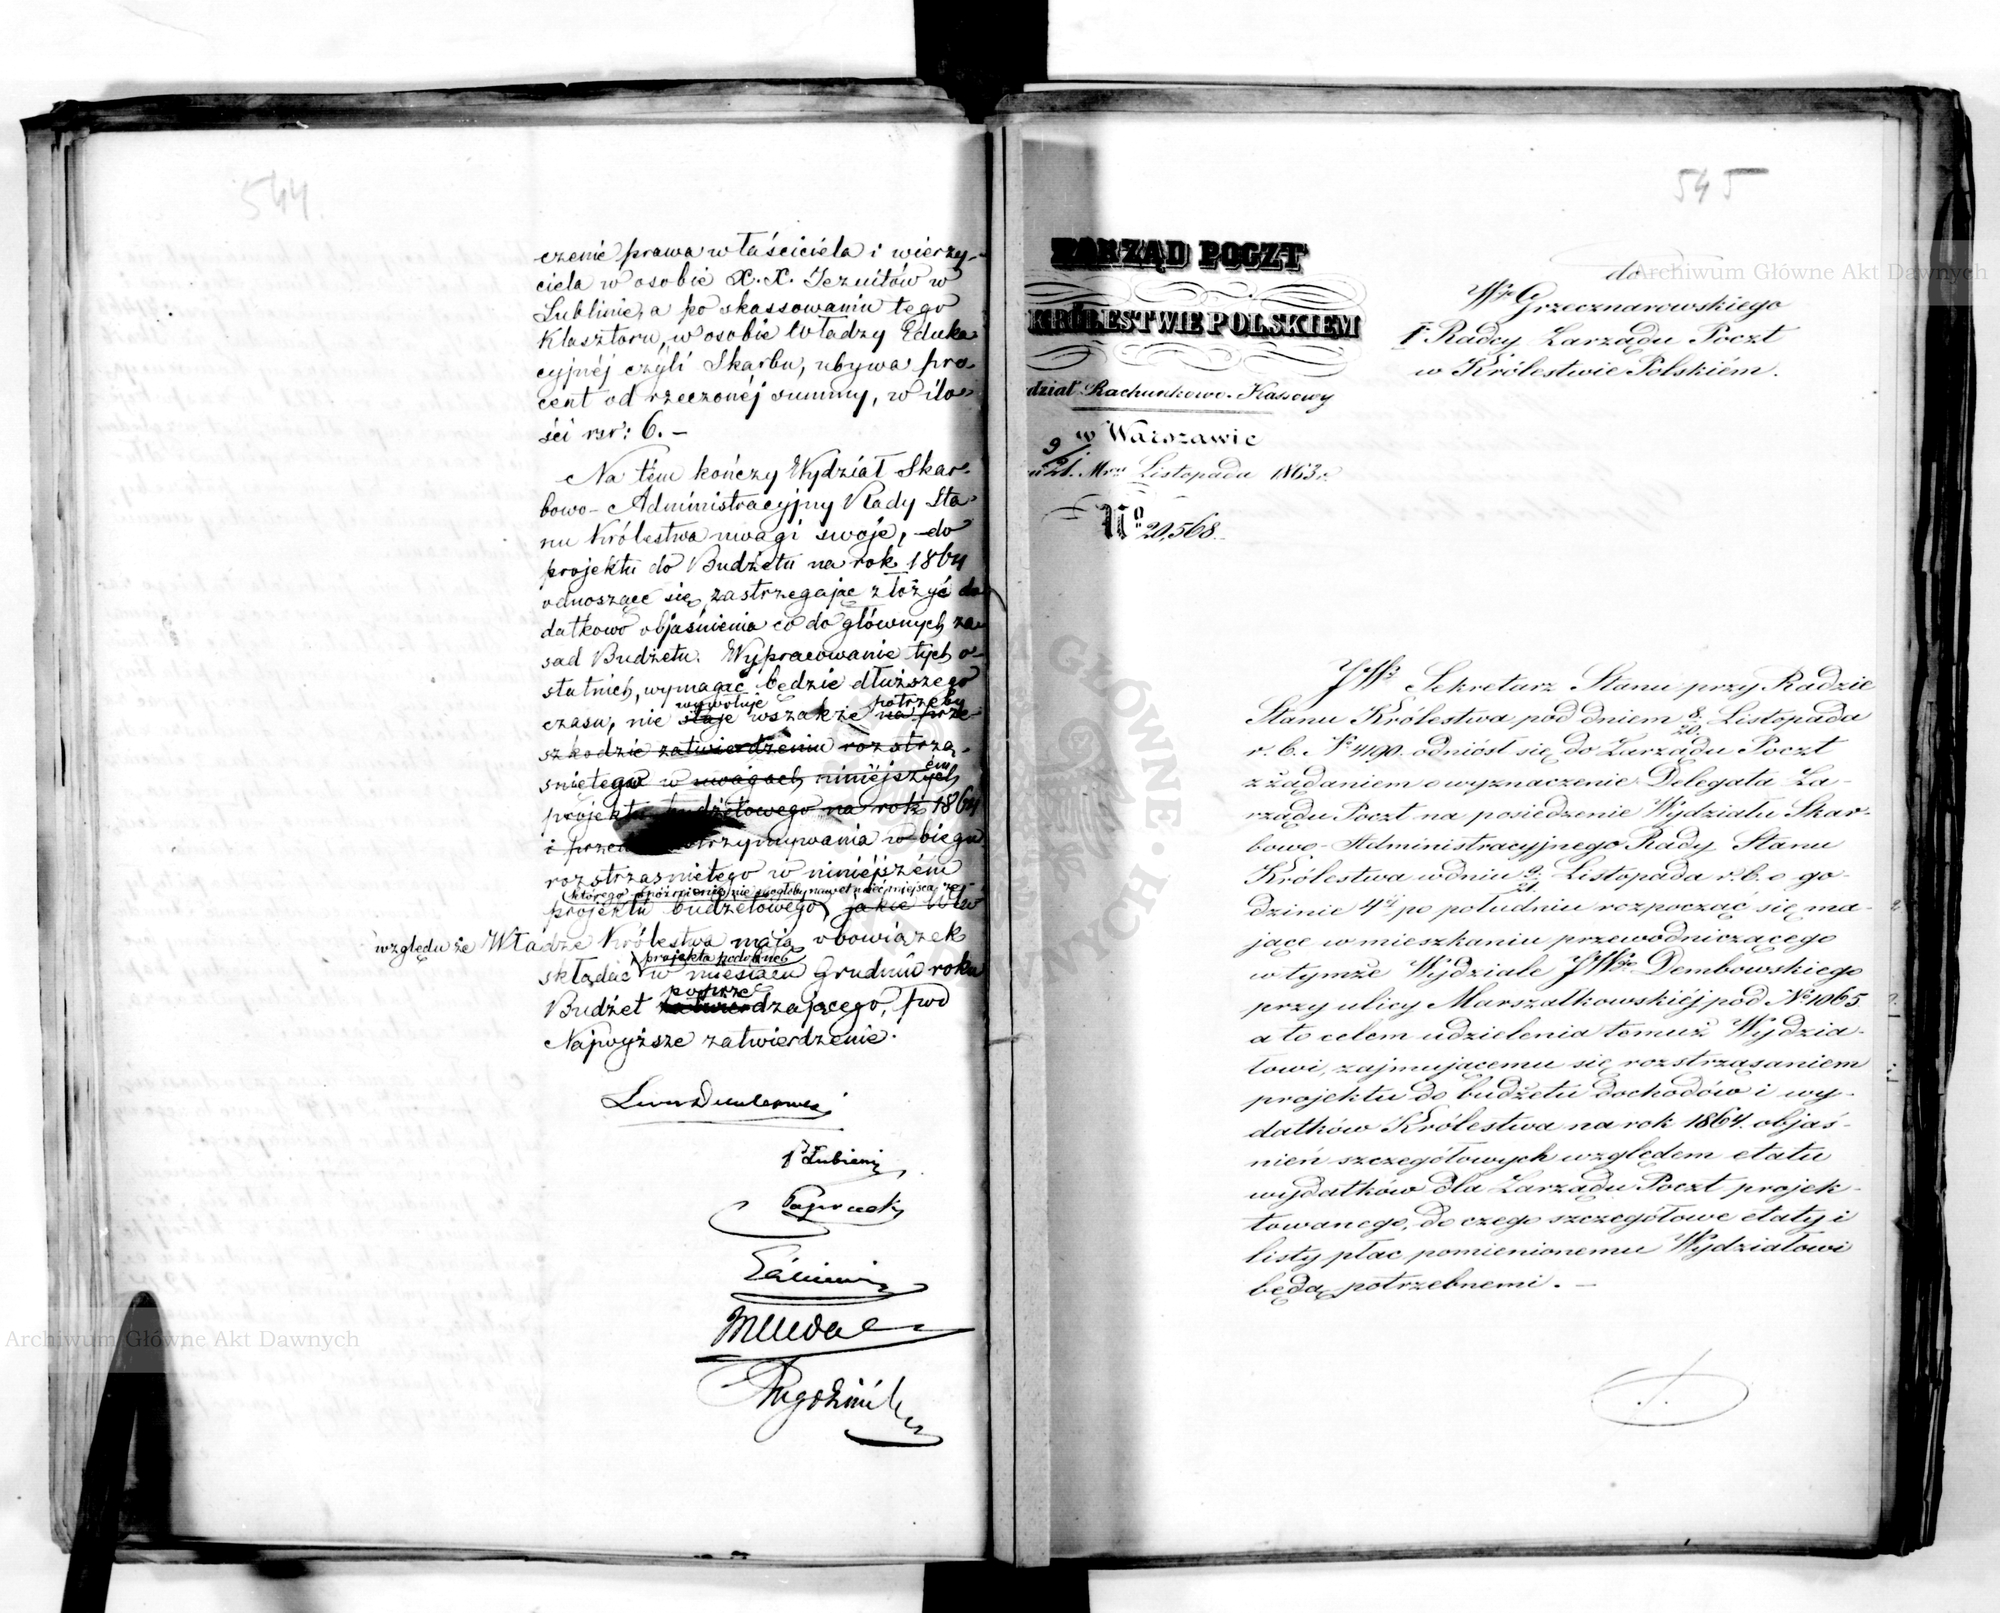 544.
czenie prawa właściciela i wierzy-
ciela w osobie X. X. Jezuitów w
Lublinie, a po skassowaniu tego
Klasztoru, w osobie Władzy Eduka
cyjnéj czyli Skarbu, ubywa pro-
cent od rzeczonéj summy, w ilo-
ści rsr: 6. –
Na tém kończy Wydział Skar-
bowo-Administracyjny Rady Sta-
nu Królestwa uwagi swoje, do
projektu do Budżetu na rok 1864
odnoszące się, zastrzegając złożyć do
datkowo objaśnienia co do głównych za-
sad Budżetu. Wypracowanie tych o-
statnich, wymagać będzie dłuższego
wywołuje potrzeby
czasu, nie staje wszakże na prze-
szkodzie zatwierdzeniu roztrzą-
śniętego w uwagach niniejszych
ém
projektu budżetowego na rok 1864
i przeto wstrzymywania w biegu
roztrzaśniętego w niniéjszém
którego opóźnienie nie mogłoby nawet mieć miejsca ze
projektu budżetowego, jakie Wła
względu że Władze Królestwa mają obowiązek
projekta podobne
składać w miesiącu Grudniu roku
poprze
Budżet zatwierdzającego, pod
Najwyższe zatwierdzenie.
Łubieni
545
ZARZĄD POCZT
KRÓLESTWIE POLSKIEM
dział Rachunkowo-Kassowy
w Warszawie
9/21. Mca Listopada 1863 r.
No 20,568.
do
Wgo Grzecznarowskiego
1o Radcy Zarządu Poczt
w Królestwie Polskiém.
JW. Sekretarz Stanu przy Radzie
Stanu Królestwa pod dniem 8/20. Listopada
r. b. No 4190. odniósł się do Zarządu Poczt
z żądaniem o wyznaczenie Delegata Za-
rządu Poczt na posiedzenie Wydziału Skar-
bowo-Administracyjnego Rady Stanu
Królestwa w dniu 9/21. Listopada r. b. o go-
dzinie 4éj po południu rozpocząć się ma-
jące w mieszkaniu przewodniczącego
w tymże Wydziale JWgo Dembowskiego
przy ulicy Marszałkowskiéj pod No 1065
a to celem udzielenia temuż Wydzia-
łowi, zajmującemu się rozstrząsaniem
projektu do budżetu dochodów i wy-
datków Królestwa na rok 1864. objaś-
nień szczegółowych względem etatu
wydatków dla Zarządu Poczt projek-
towanego, do czego szczegółowe etaty i
listy płac pomienionemu Wydziałowi
będą potrzebnemi. –
Archiwum Główne Akt Dawnych
Archiwum Główne Akt Dawnych